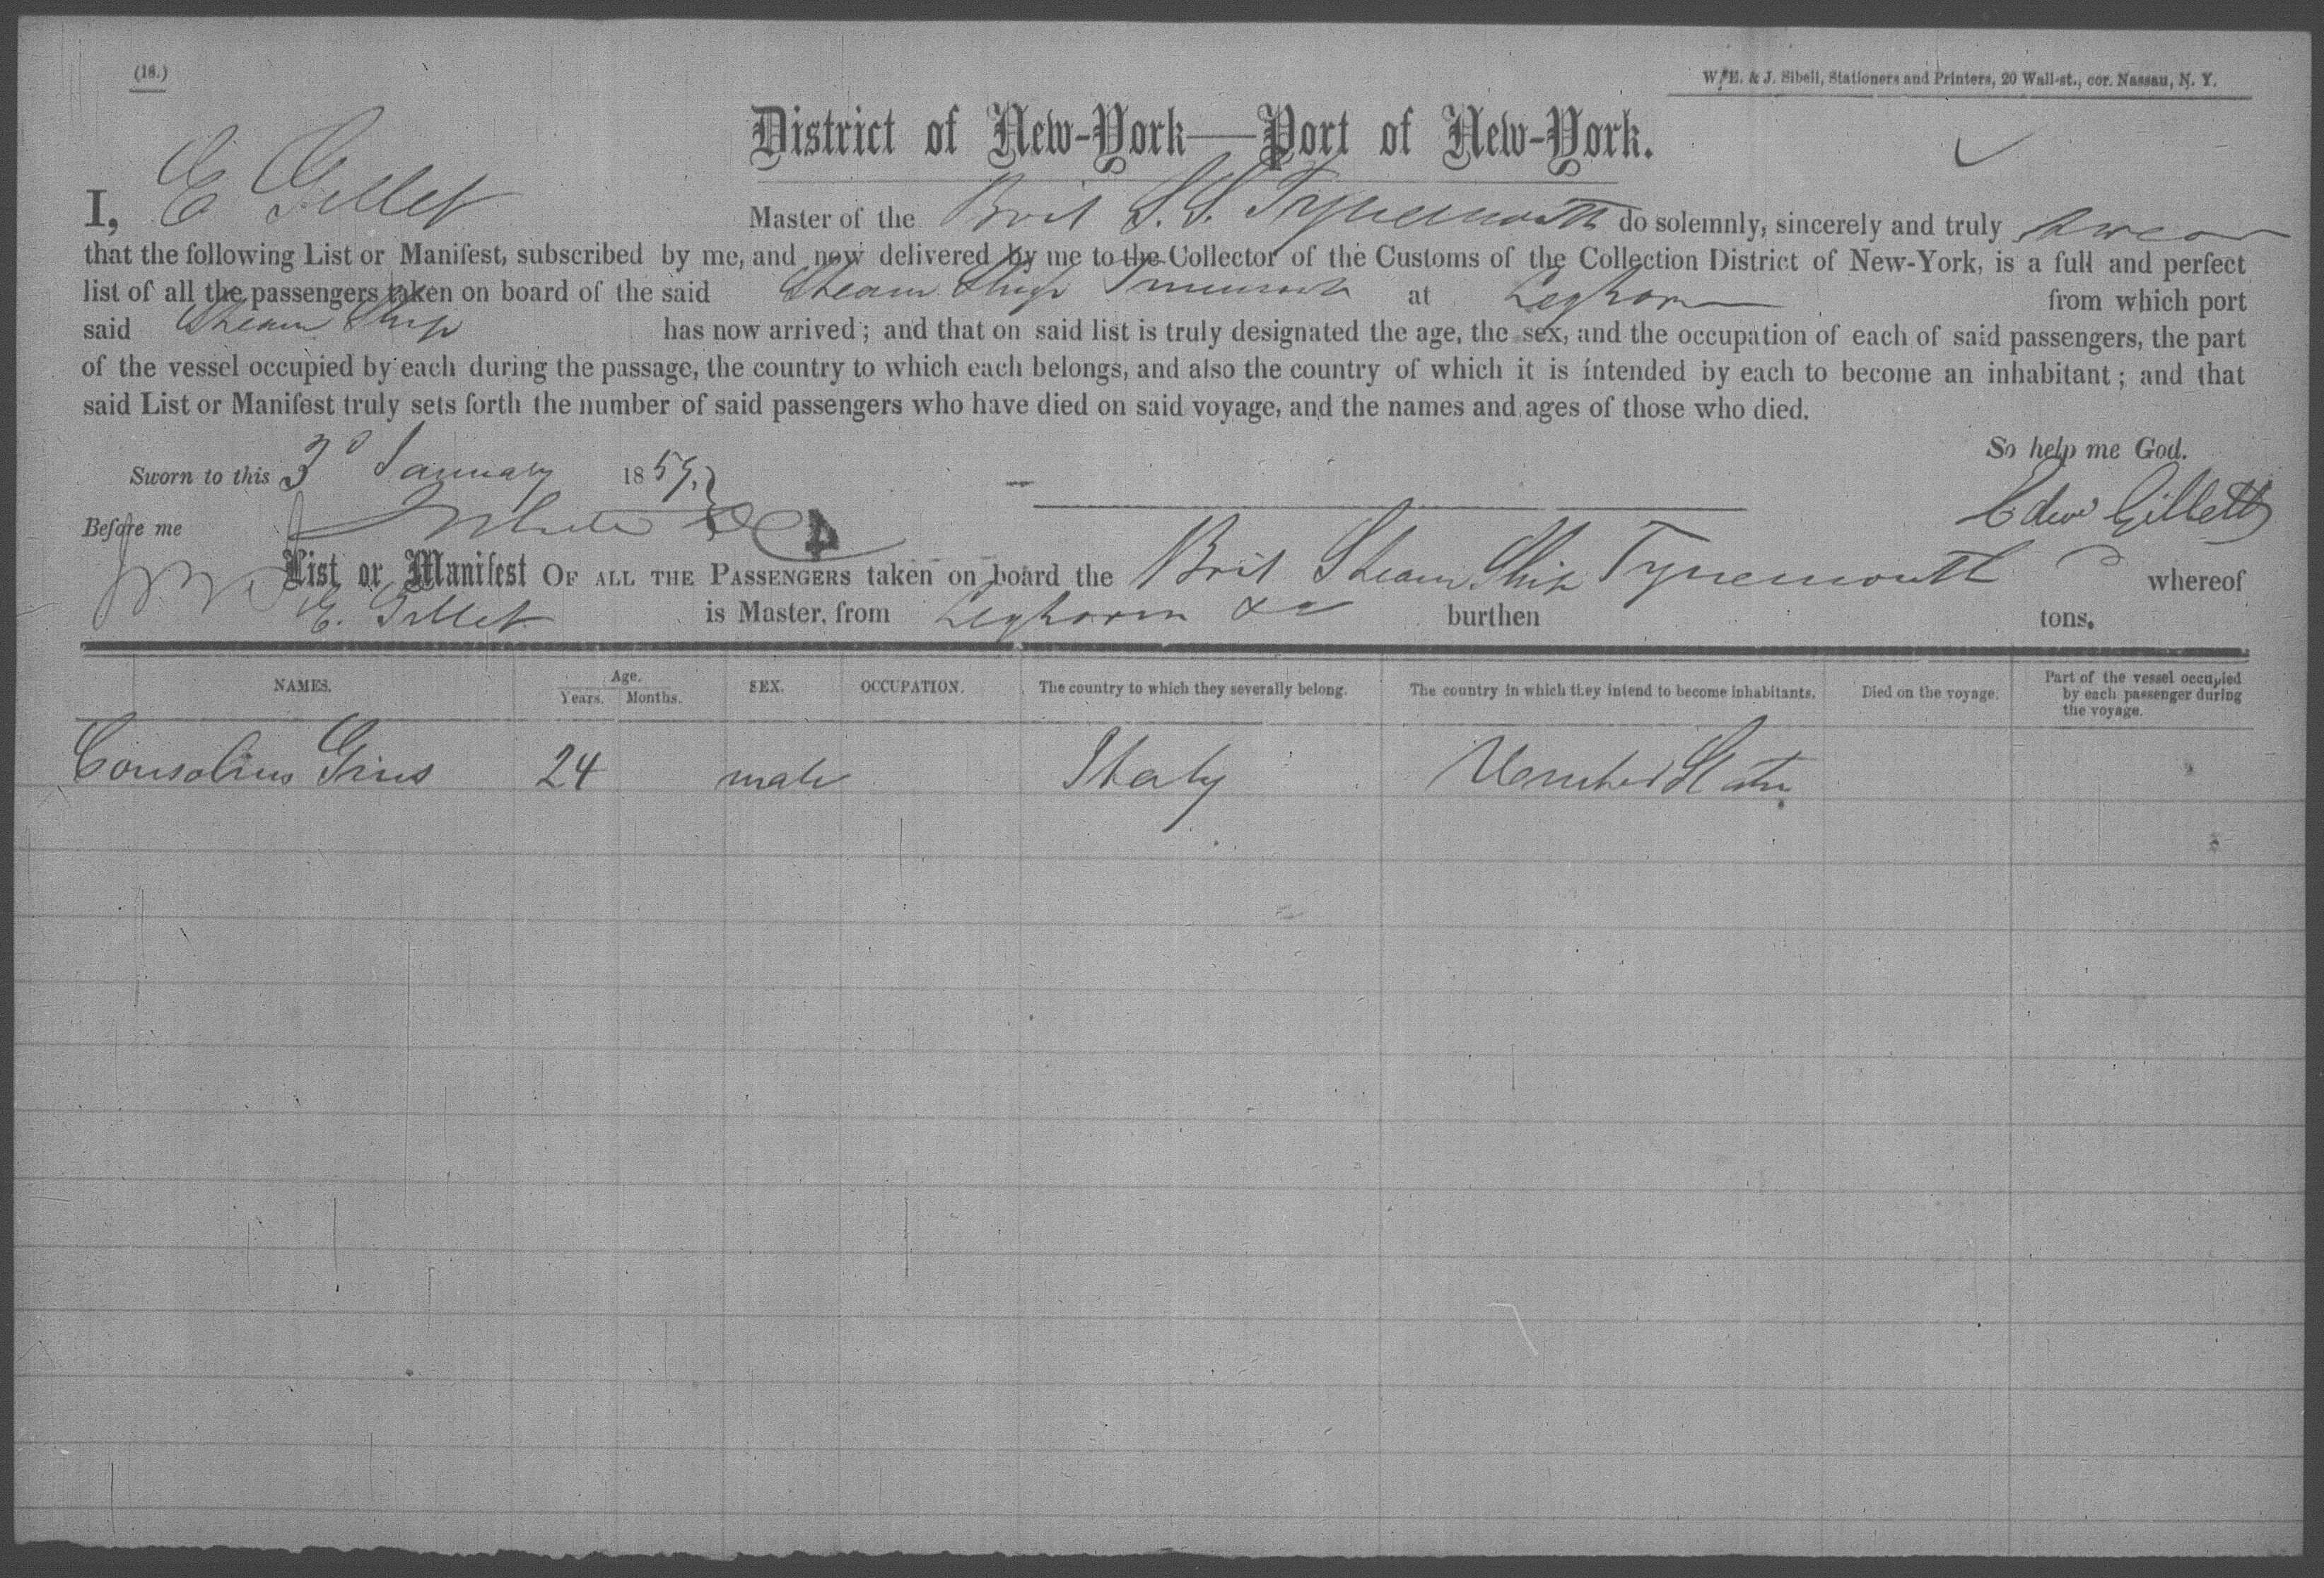 (18.)
W. E. & J. Sibell, Stationers and Printers, 20 Wall-st., cor. Nassau, N. Y.
District of New-York—Port of New-York.
I, E Gillet Master of the Brit S.S. Tynemouth do solemnly, sincerely and truly swear
that the following List or Manifest, subscribed by me, and now delivered by me to the Collector of the Customs of the Collection District of New-York, is a full and perfect
list of all the passengers taken on board of the said Steam Ship at Leghorn from which port
said Steam Ship has now arrived; and that on said list is truly designated the age, the sex, and the occupation of each of said passengers, the part
of the vessel occupied by each during the passage, the country to which each belongs, and also the country of which it is intended by each to become an inhabitant; and that
said List or Manifest truly sets forth the number of said passengers who have died on said voyage, and the names and ages of those who died.
So help me God.
Sworn to this 3d January 1859.
Edw Gillett
Before me
4
List or Manifest OF ALL THE PASSENGERS taken on board the Brit Steam Ship Tynemouth whereof
E. Gillet is Master, from Leghorn &c burthen tons.
NAMES. Age. Years. Months. SEX. OCCUPATION. The country to which they severally belong. The country in which they intend to become inhabitants. Died on the voyage. Part of the vessel occupied by each passenger during the voyage.
24 male Italy United States